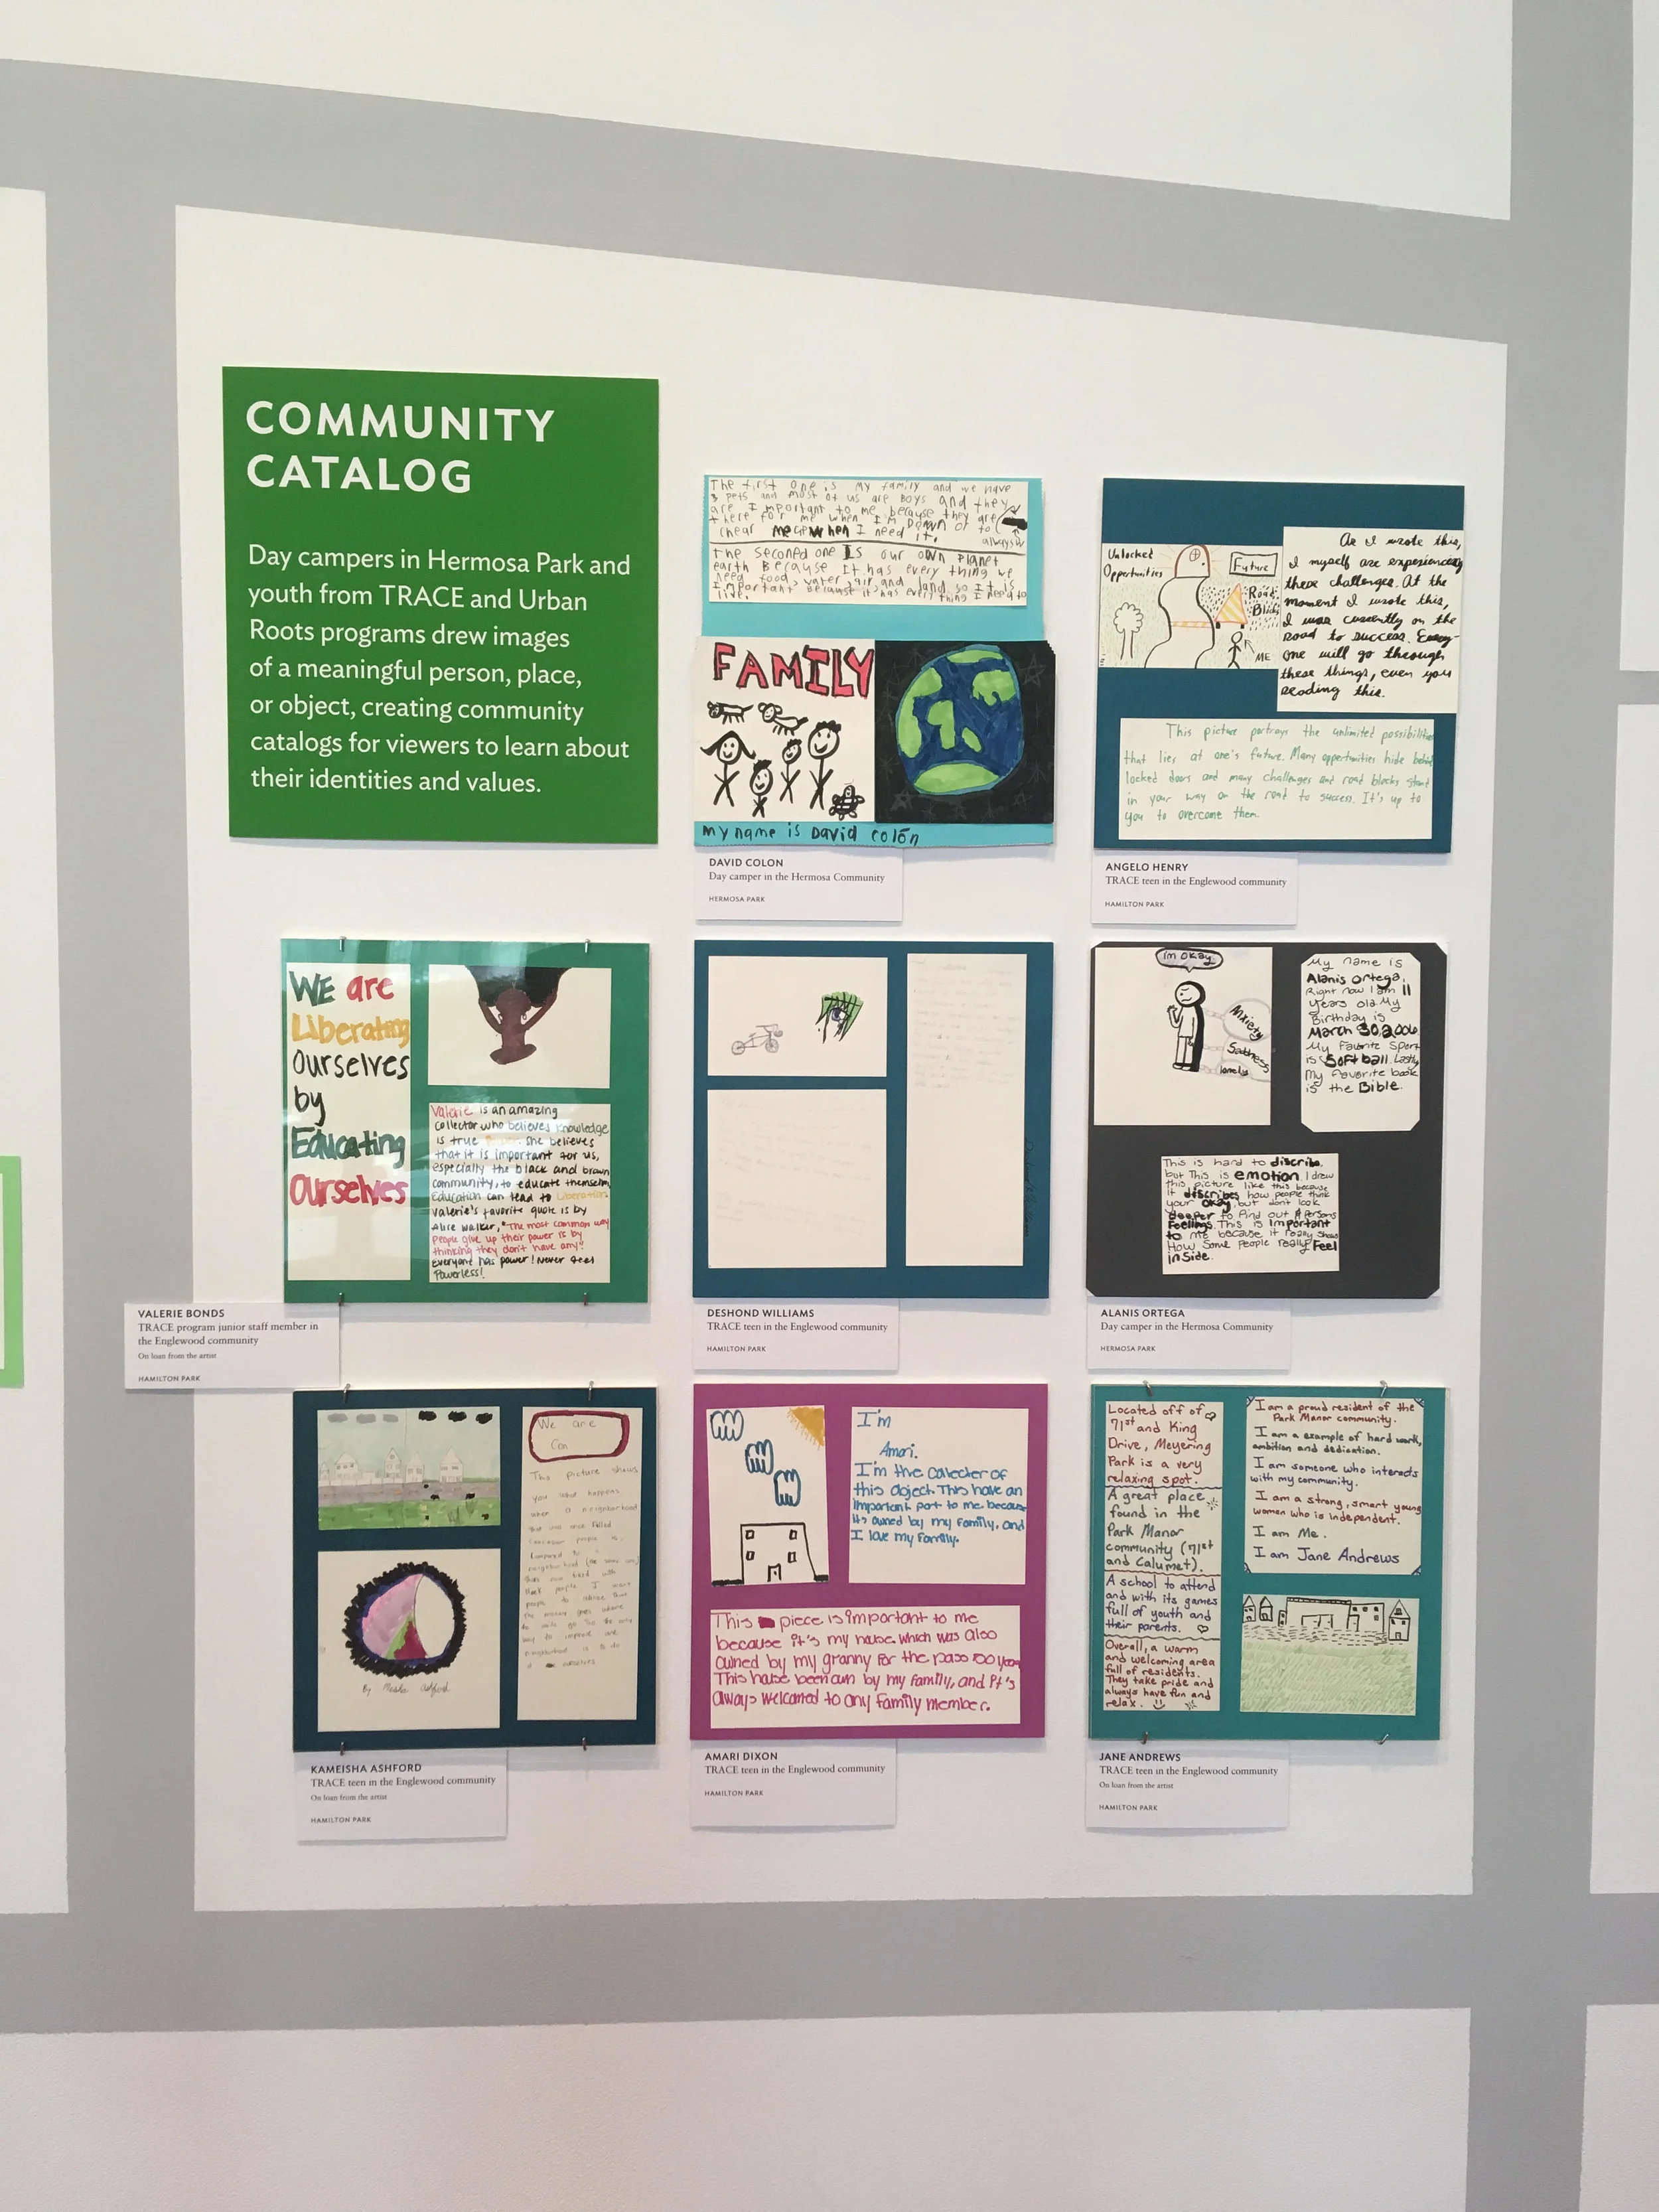 COMMUNITY
CATALOG
Day campers in Hermosa Park and
youth from TRACE and Urban
Roots programs drew images
of a meaningful person, place,
or object, creating community
catalogs for viewers to learn about
their identities and values.
The first one is my family and we have
3 pets and most of us are Boys and they
are Important to me because they are
there for me when I'm Down or to
chear me when I need it. always
The seconed one Is our own Planet
earth Because It has every thing we
need food, water, air, and land, so It is
Important because it has every thing I need to
live.
FAMILY
My name is David colón
DAVID COLON
Day camper in the Hermosa Community
HERMOSA PARK
Unlocked
Opportunities
Future
Road
Blocks
ME
As I wrote this,
I myself are experiencing
these challenges. At the
moment I wrote this,
I was currently on the
road to success. Every-
one will go through
these things, even you
reading this.
This picture portrays the unlimited possibilities
that lies at one's future. Many opportunities hide behind
locked doors and many challenges and road blocks stand
in your way on the road to success. It's up to
you to overcome them.
ANGELO HENRY
TRACE teen in the Englewood community
HAMILTON PARK
WE are
Liberating
Ourselves
by
Educating
Ourselves
Valerie is an amazing
collector who believes knowledge
is true power. She believes
that it is important for us,
especially the black and brown
community, to educate themselves
Education can lead to Liberation.
Valerie's favorite quote is by
Alice Walker, "The most common way
people give up their power is by
thinking they don't have any."
Everyone has power! Never feel
Powerless!
VALERIE BONDS
TRACE program junior staff member in
the Englewood community
On loan from the artist
HAMILTON PARK
DESHOND WILLIAMS
TRACE teen in the Englewood community
HAMILTON PARK
im okay
Anxiety
Sadness
lonely
My name is
Alanis Ortega.
Right now I am 11
years old. My
Birthday is
March 30, 2006
My Favorite Sport
is Softball. Lastly
My favorite book
is the Bible.
This is hard to discribe,
but This is emotion. I drew
this picture like this because
it describes how people think
your okay, but don't look
deeper to find out A persons
Feelings. This is important
to me because it really shows
How Some People really Feel
inside.
ALANIS ORTEGA
Day camper in the Hermosa Community
HERMOSA PARK
We are
Con
The picture shows
you what happens
when a neighborhood
that was once filled
people is
Compared to
neighborhood
filled with
people. I want
people to
the money goes where
neighborhood is to do
By Meisha Ashford
KAMEISHA ASHFORD
TRACE teen in the Englewood community
On loan from the artist
HAMILTON PARK
I'm
Amari.
I'm the collecter of
this object. This have an
Important part to me because
its owned by my family, and
I love my family.
This piece is important to me
because it's my house. which was also
owned by my granny for the pass 100 years
This house been own by my family, and it's
always welcomed to any family member.
AMARI DIXON
TRACE teen in the Englewood community
HAMILTON PARK
Located off of
71st and King
Drive, Meyering
Park is a very
relaxing spot.
A great place
found in the
Park Manor
community (71st
and Calumet).
A school to attend
and with its games
full of youth and
their parents.
Overall, a warm
and welcoming area
full of residents.
They take pride and
always have fun and
relax.
I am a proud resident of the
Park Manor community.
I am a example of hard work,
ambition and dedication.
I am someone who interacts
with my community.
I am a strong, smart young
woman who is independent.
I am Me.
I am Jane Andrews
JANE ANDREWS
TRACE teen in the Englewood community
On loan from the artist
HAMILTON PARK